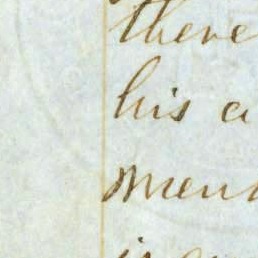 there
his a
men